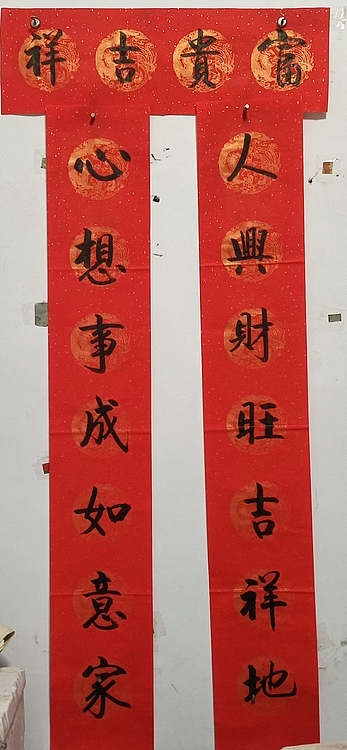 富貴吉祥
人興財旺吉祥地
心想事成如意家